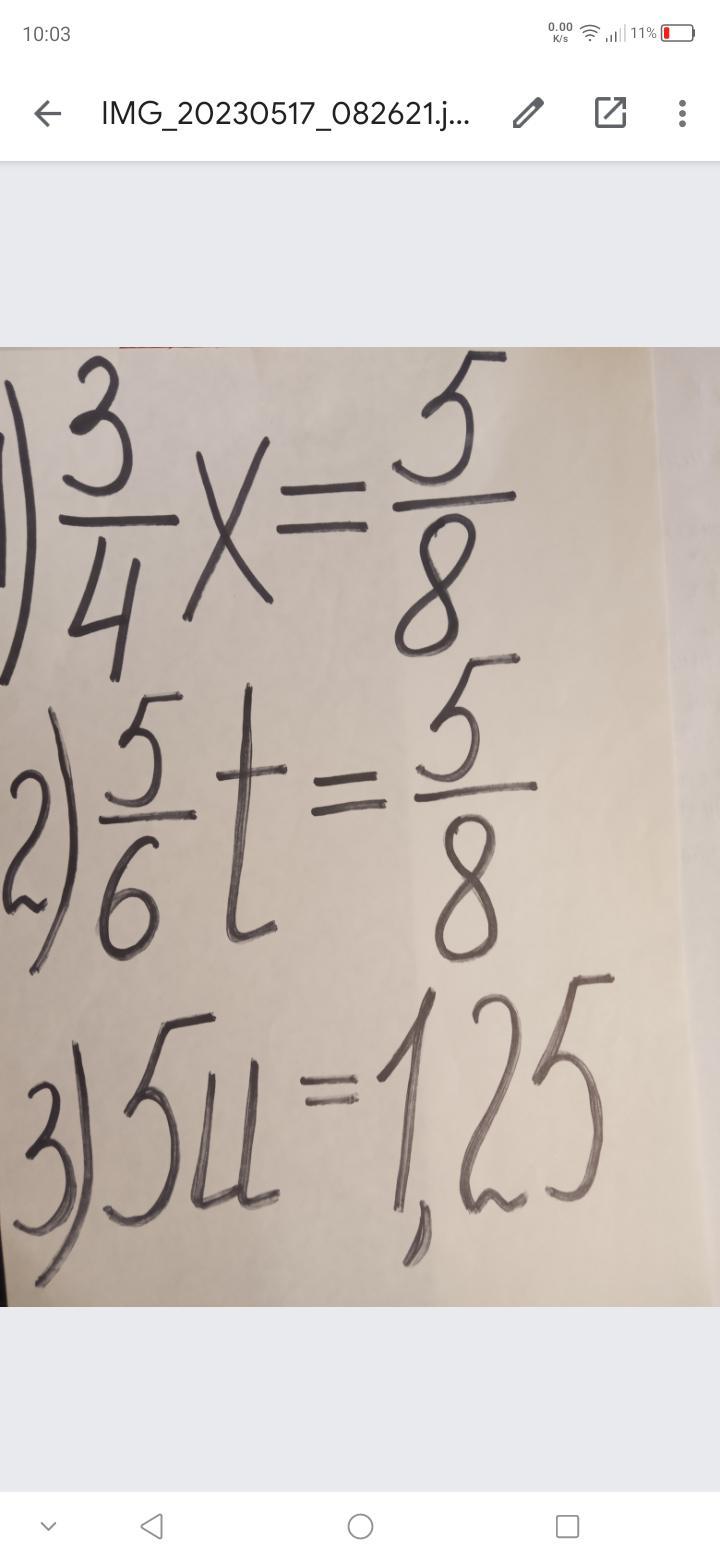 10:03 0.00 K/s 11%
IMG_20230517_082621.j...
1) 3/4 x = 5/8
2) 5/6 t = 5/8
3) 5u = 1,25